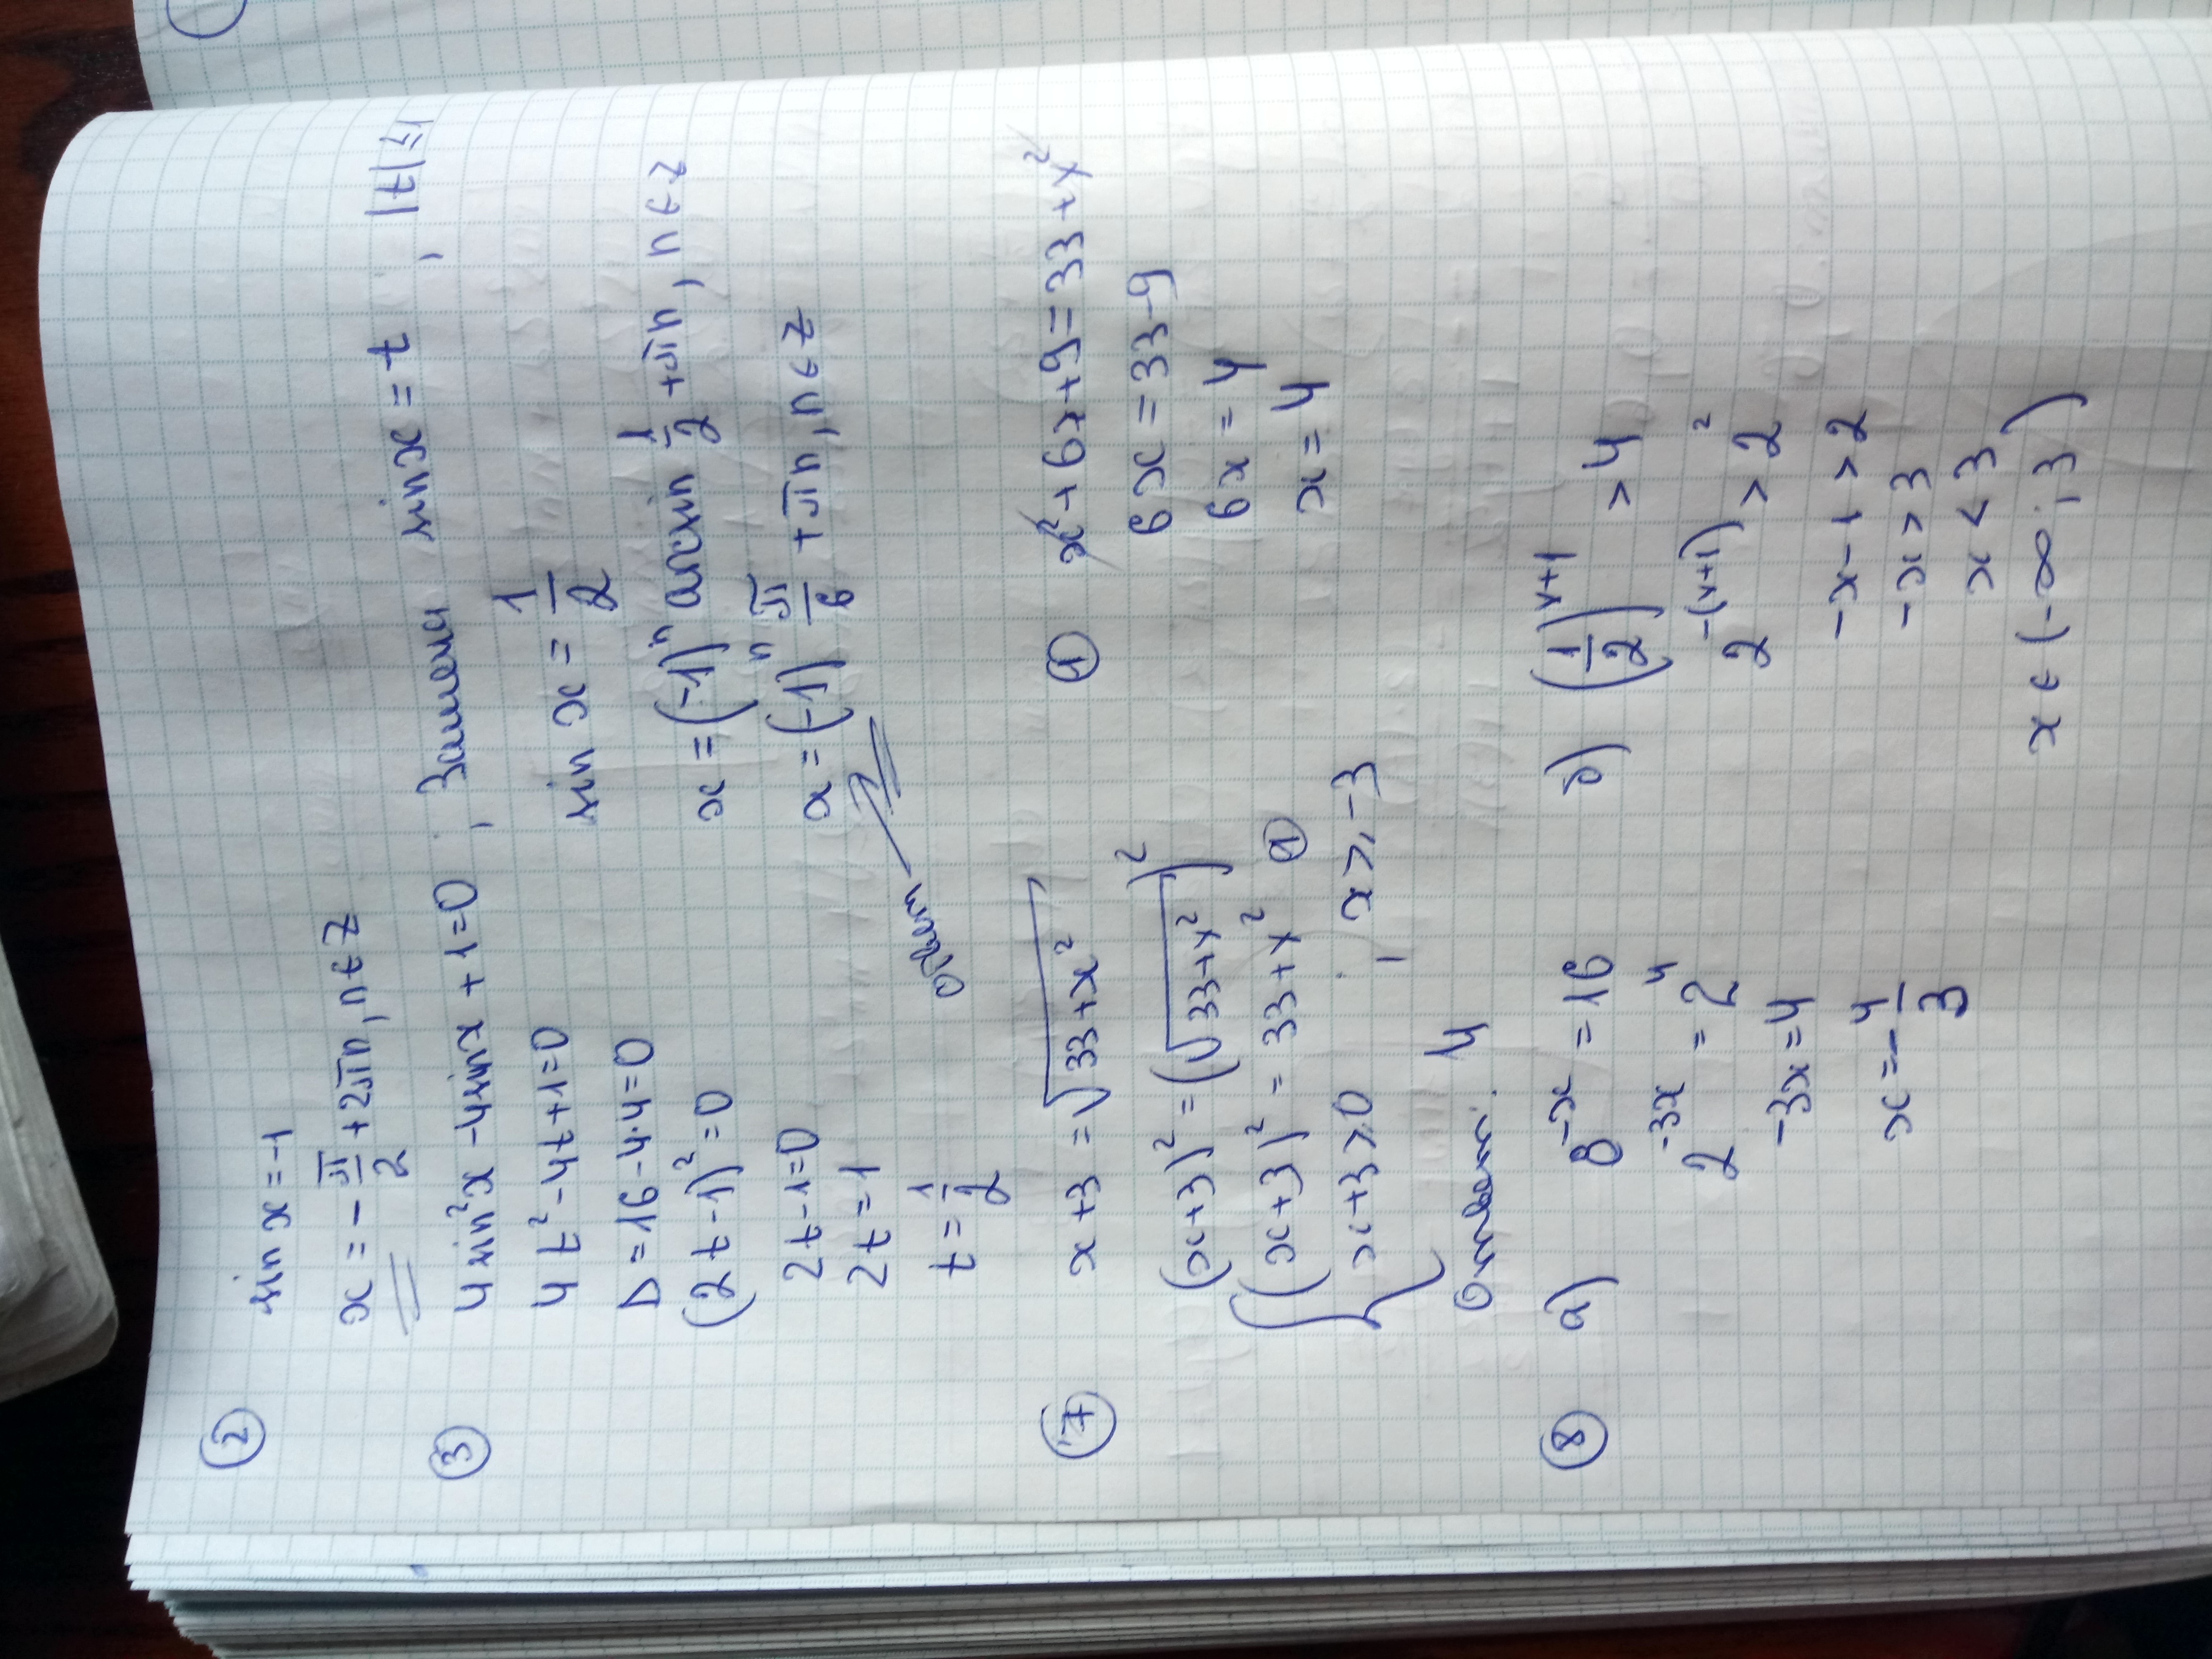 ② sin x = -1
x = - π/2 + 2πn, n ∈ Z
③ 4 sin²x - 4 sin x + 1 = 0, Замена sin x = t, |t| ≤ 1
4t² - 4t + 1 = 0
D = 16 - 4·4 = 0
(2t - 1)² = 0
2t - 1 = 0
2t = 1
t = 1/2
sin x = 1/2
x = (-1)ⁿ arcsin 1/2 + πn, n ∈ Z
x = (-1)ⁿ π/6 + πn, n ∈ Z
Ответ
⑦ x + 3 = √(33 + x²)
(x + 3)² = (√(33 + x²))²
{ (x + 3)² = 33 + x² ①
x + 3 ≥ 0, x ≥ -3
Ответ: 4
① x² + 6x + 9 = 33 + x²
6x = 33 - 9
6x = 4
x = 4
⑧ а) 8⁻ˣ = 16
2⁻³ˣ = 2⁴
-3x = 4
x = - 4/3
б) (1/2)ˣ⁺¹ > 4
2⁻⁽ˣ⁺¹⁾ > 2²
-x - 1 > 2
-x > 3
x < 3
x ∈ (-∞; 3)